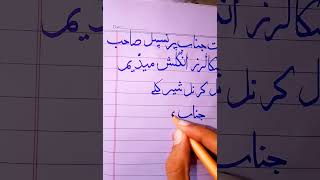 ت جناب پرنسپل صاحب
سکالرز انگلش میڈیم
ل کرنل شیر کلے
جناب ،
جناب